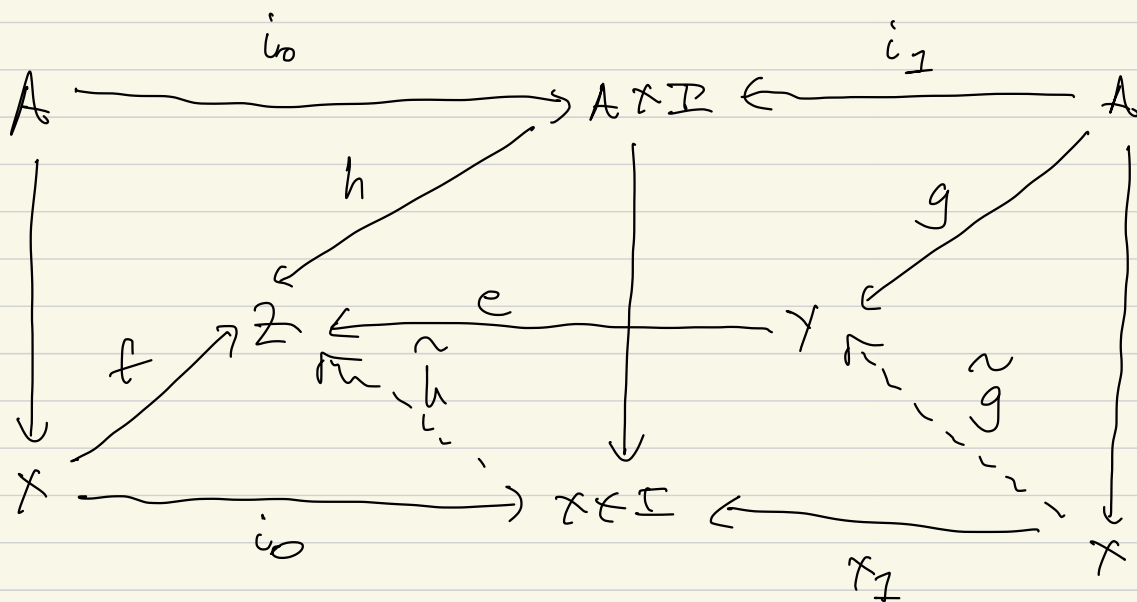 i₀ i₁
A A×I A
h g
Z e Y
f h̃ g̃
X X×I X
i₀ x₁